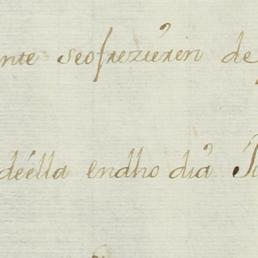 nte seofrezierén de
deélla endho diá